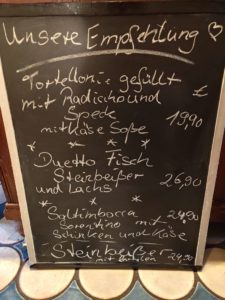 Unsere Empfehlung
Tortelloni gefüllt
mit Radicchio und
Speck 19,90
mit Käse Soße
Duetto Fisch
Steinbeißer
und Lachs 26,90
Saltimbocca 24,90
Sorentino mit
Schinken und Käse
Steinbeißer
mit 24,90